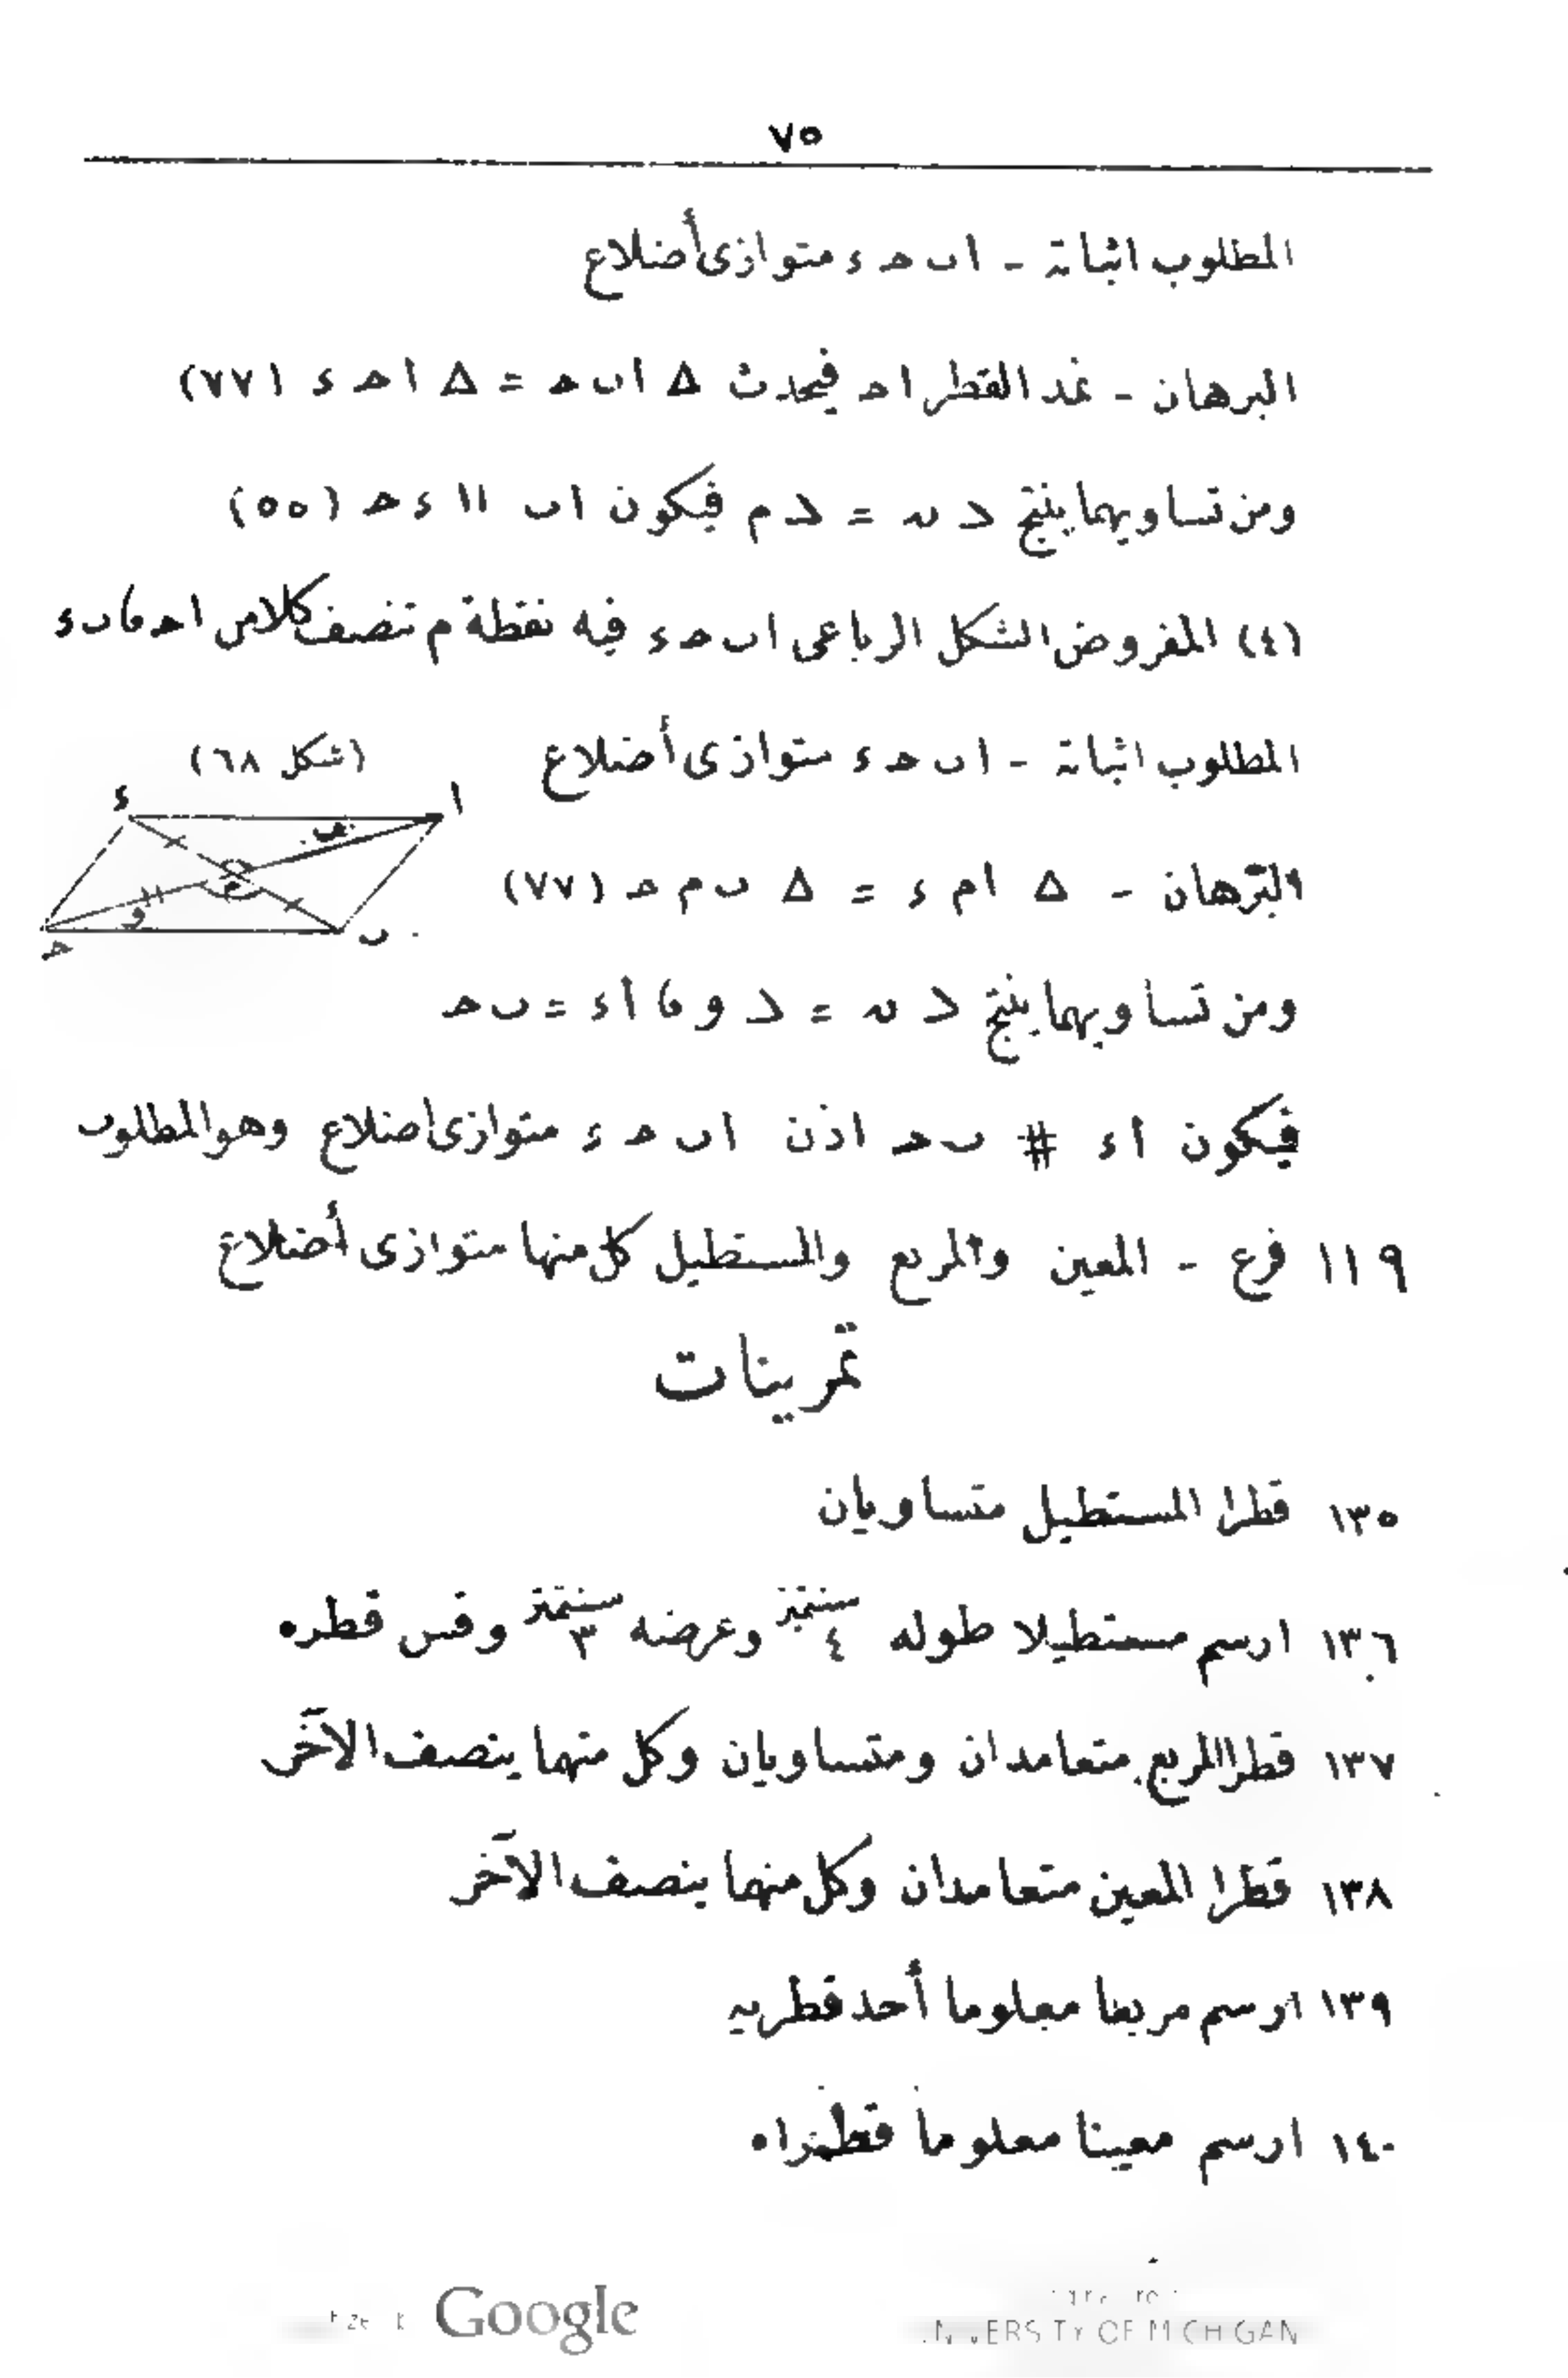 ٧٥
المطلوب اثباته - اب‍ ح‍ ء متوازى أضلاع
البرهان - نمد القطر اح‍ فيحدث △ اب‍ ح‍ = △ اح‍ ء (٧٧)
ومن تساويهما ينتج د ن = د م فيكون اب‍ ١١ ء ح‍ (٥٥)
(٤) المفروض الشكل الرباعى اب‍ ح‍ ء فيه نقطة م تنصف كلا من اح‍ ، ب‍ ء
المطلوب اثباته - اب‍ ح‍ ء متوازى أضلاع
(شكل ٦٨)
ء ا
م
و
ح‍ ب‍
البرهان - △ ام ء = △ ب‍ م ح‍ (٧٧)
ومن تساويهما ينتج د ن = د و ، أء = ب‍ ح‍
فيكون أء # ب‍ ح‍ اذن اب‍ ح‍ ء متوازى اضلاع وهو المطلوب
١١٩ فرع - المعين والمربع والمستطيل كل منها متوازى أضلاع
تمرينات
١٣٥ قطرا المستطيل متساويان
١٣٦ ارسم مستطيلا طوله ٤ سنتمتر وعرضه ٣ سنتمتر وقس قطره
١٣٧ قطرا المربع متعامدان ومتساويان وكل منهما ينصف الآخر
١٣٨ قطرا المعين متعامدان وكل منهما ينصف الآخر
١٣٩ ارسم مربعا معلوما أحد قطريه
١٤٠ ارسم معينا معلوما قطراه
Google
UNIVERSITY OF MICHIGAN